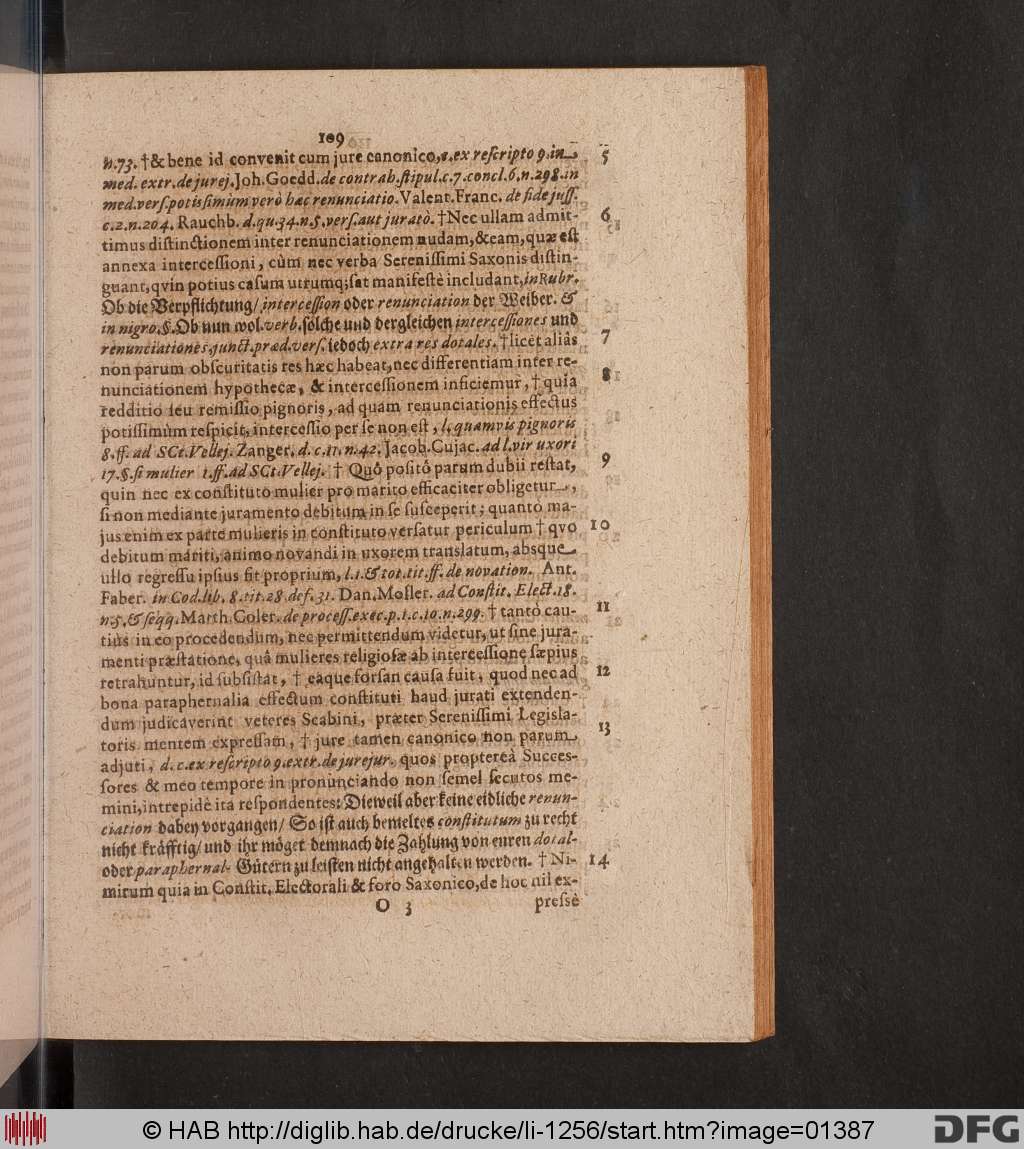 109
n.73. †& bene id convenit cum jure canonico, c. ex reſcripto 9. in 5
med. extr. de jurej. Joh. Goedd. de contrah. ſtipul. c. 7. concl. 6. n. 298. in
med. verſ. potiſſimùm verò hæc renunciatio. Valent. Franc. de fidejuſſ.
c. 2. n. 204. Rauchb. d. qu. 34. n. 5. verſ. aut juratò. † Nec ullam admit- 6
timus diſtinctionem inter renunciationem nudam, & eam, quæ eſt
annexa interceſſioni, cùm nec verba Sereniſſimi Saxonis diſtin-
guant, qvin potius caſum utrumq; ſat manifeſtè includant, in Rubr.
Ob die Verpflichtung/ interceſſion oder renunciation der Weiber. &
in nigro. §. Ob nun wol. verb. ſolche und dergleichen interceſſiones und
renunciationes, junct. præd. verſ. iedoch extra res dotales. † licèt aliâs 7
non parum obſcuritatis res hæc habeat, nec differentiam inter re-
nunciationem hypothecæ, & interceſſionem inficiemur, † quia 8
redditio ſeu remiſſio pignoris, ad quam renunciationis effectus
potiſſimùm reſpicit, interceſſio per ſe non eſt, l. quamvis pignoris
8. ff. ad SCt. Vellej. Zanger. d. c. 11. n. 42. Jacob. Cujac. ad l. vir uxori
17. §. ſi mulier 1. ff. ad SCt. Vellej. † Quô poſitô parum dubii reſtat, 9
quin nec ex conſtituto mulier pro marito efficaciter obligetur,
ſi non mediante juramento debitum in ſe ſuſceperit; quantò ma-
jus enim ex parte mulieris in conſtituto verſatur periculum † qvo 10
debitum mariti, animo novandi in uxorem translatum, absque
ullo regreſſu ipſius fit proprium, l. 1. & tot. tit. ff. de novation. Ant.
Faber. in Cod. lib. 8. tit. 28. def. 31. Dan. Moller. ad Conſtit. Elect. 18.
n. 5. & ſeqq. Matth. Coler. de proceſſ. exec. p. 1. c. 10. n. 299. † tantò cau- 11
tiùs in eo procedendum, nec permittendum videtur, ut ſine jura-
menti præſtatione, quâ mulieres religioſæ ab interceſſione ſæpius
retrahuntur, id ſubſiſtat, † eaque forſan cauſa fuit, quod nec ad 12
bona paraphernalia effectum conſtituti haud jurati extenden-
dum judicaverint veteres Scabini, præter Sereniſſimi Legisla-
toris mentem expreſſam, † jure tamen canonico non parum 13
adjuti, d. c. ex reſcripto 9. extr. de jurejur. quos propterea Succeſ-
ſores & meo tempore in pronunciando non ſemel ſecutos me-
mini, intrepidè ita reſpondentes: Dieweil aber keine eidliche renun-
ciation dabey vorgangen/ So iſt auch bemeltes conſtitutum zu recht
nicht kräfftig/ und ihr möget demnach die Zahlung von euren dotal-
oder paraphernal- Gütern zu leiſten nicht angehalten werden. † Ni- 14
mirum quia in Conſtit. Electorali & foro Saxonico, de hoc nil ex-
O 3 preſsè
© HAB http://diglib.hab.de/drucke/li-1256/start.htm?image=01387
DFG